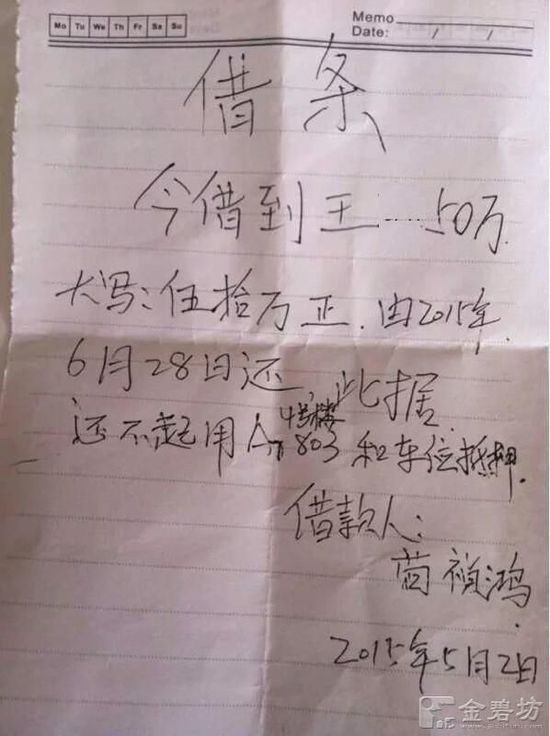 Mo Tu We Th Fr Sa Su
Memo
Date: / /
借条
今借到王 50万
大写:伍拾万正.由2015年.
6月28日还,此据.
4号楼
还不起用A 803和车位抵押.
借款人:
祯鸿.
2015年5月2日
金碧坊